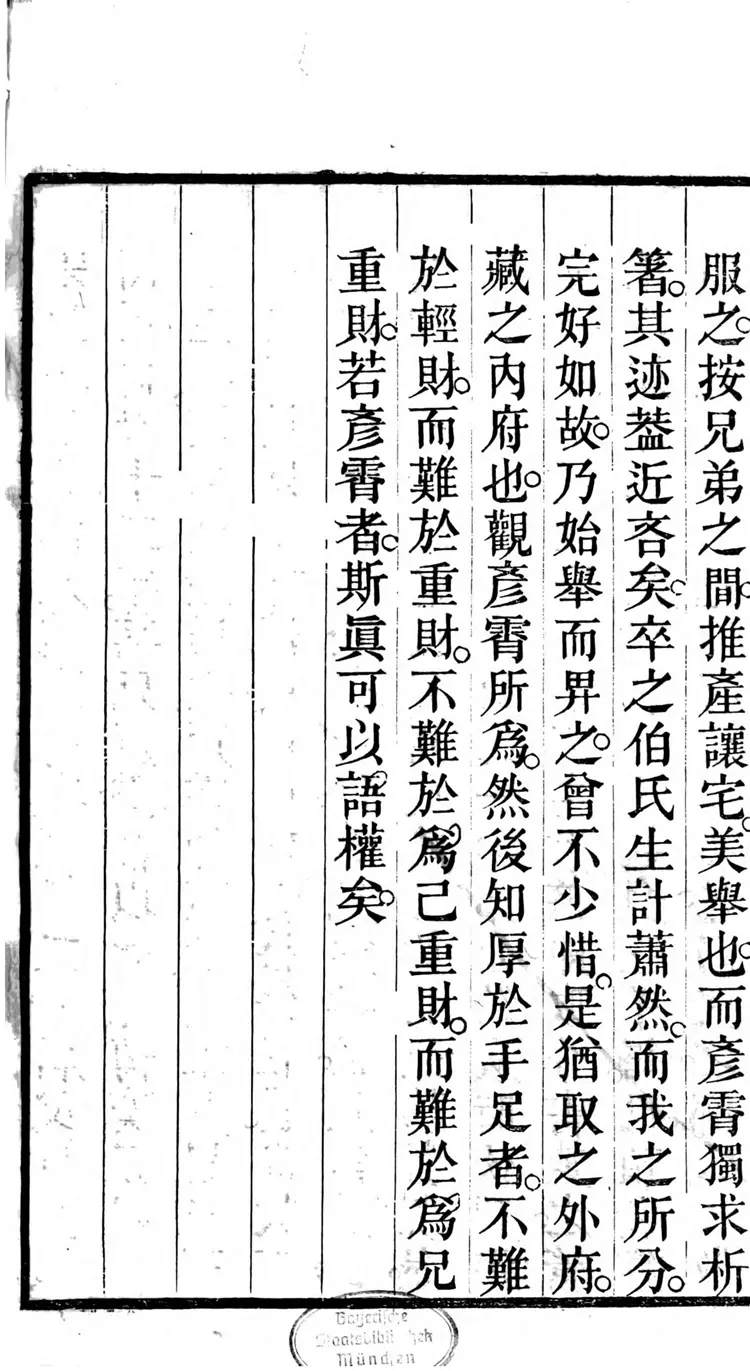 服之。按兄弟之間。推產讓宅。美舉也。而彥霄獨求析
箸。其迹葢近吝矣。卒之伯氏生計蕭然。而我之所分。
完好如故。乃始舉而畀之。曾不少惜。是猶取之外府。
藏之內府也。觀彥霄所爲。然後知厚於手足者。不難
於輕財。而難於重財。不難於爲己重財。而難於爲兄
重財。若彥霄者。斯眞可以語權矣。
Bayerische
Staatsbibliothek
München